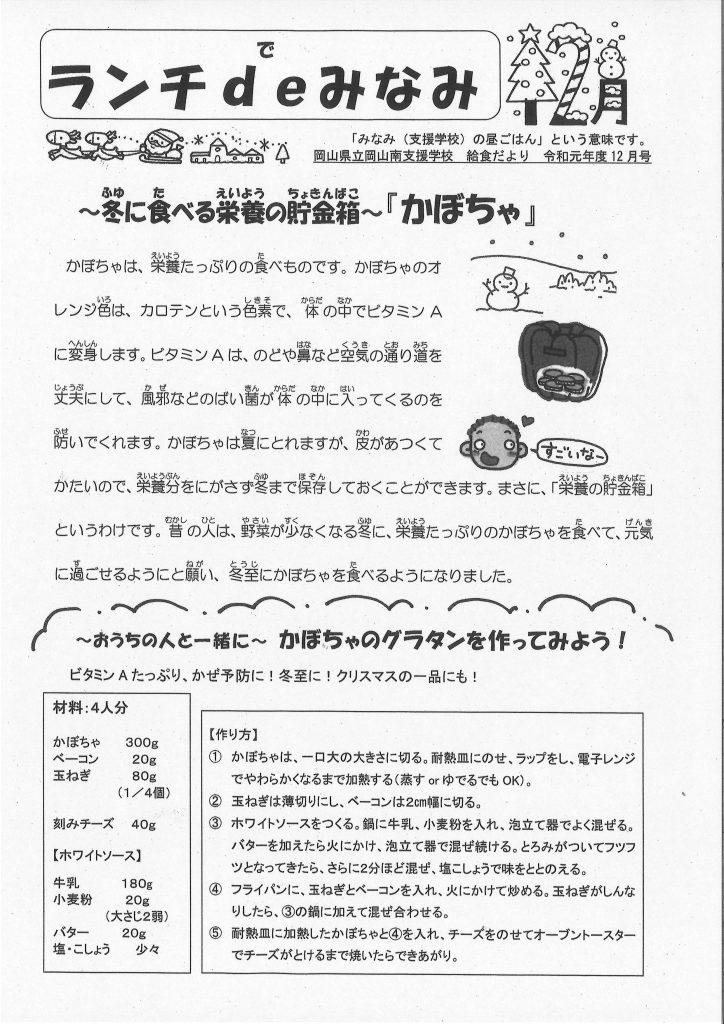 ランチdeみなみ
で
12月
「みなみ(支援学校)の昼ごはん」という意味です。
岡山県立岡山南支援学校 給食だより 令和元年度12月号
~冬に食べる栄養の貯金箱~『かぼちゃ』
ふゆ た えいよう ちょきんばこ
かぼちゃは、栄養たっぷりの食べものです。かぼちゃのオ
えいよう た
レンジ色は、カロテンという色素で、体の中でビタミンA
いろ しきそ からだ なか
に変身します。ビタミンAは、のどや鼻など空気の通り道を
へんしん はな くうき とお みち
丈夫にして、風邪などのばい菌が体の中に入ってくるのを
じょうぶ かぜ きん からだ なか はい
防いでくれます。かぼちゃは夏にとれますが、皮があつくて
ふせ なつ かわ
すごいな~
かたいので、栄養分をにがさず冬まで保存しておくことができます。まさに、「栄養の貯金箱」
えいようぶん ふゆ ほぞん えいよう ちょきんばこ
というわけです。昔の人は、野菜が少なくなる冬に、栄養たっぷりのかぼちゃを食べて、元気
むかし ひと やさい すく ふゆ えいよう た げんき
に過ごせるようにと願い、冬至にかぼちゃを食べるようになりました。
す ねが とうじ た
~おうちの人と一緒に~ かぼちゃのグラタンを作ってみよう!
ビタミンAたっぷり、かぜ予防に!冬至に!クリスマスの一品にも!
材料:4人分
かぼちゃ 300g
ベーコン 20g
玉ねぎ 80g
(1/4個)
刻みチーズ 40g
【ホワイトソース】
牛乳 180g
小麦粉 20g
(大さじ2弱)
バター 20g
塩・こしょう 少々
【作り方】
① かぼちゃは、一口大の大きさに切る。耐熱皿にのせ、ラップをし、電子レンジ
でやわらかくなるまで加熱する(蒸す or ゆでるでも OK)。
② 玉ねぎは薄切りにし、ベーコンは2㎝幅に切る。
③ ホワイトソースをつくる。鍋に牛乳、小麦粉を入れ、泡立て器でよく混ぜる。
バターを加えたら火にかけ、泡立て器で混ぜ続ける。とろみがついてフツフ
ツとなってきたら、さらに2分ほど混ぜ、塩こしょうで味をととのえる。
④ フライパンに、玉ねぎとベーコンを入れ、火にかけて炒める。玉ねぎがしんな
りしたら、③の鍋に加えて混ぜ合わせる。
⑤ 耐熱皿に加熱したかぼちゃと④を入れ、チーズをのせてオーブントースター
でチーズがとけるまで焼いたらできあがり。